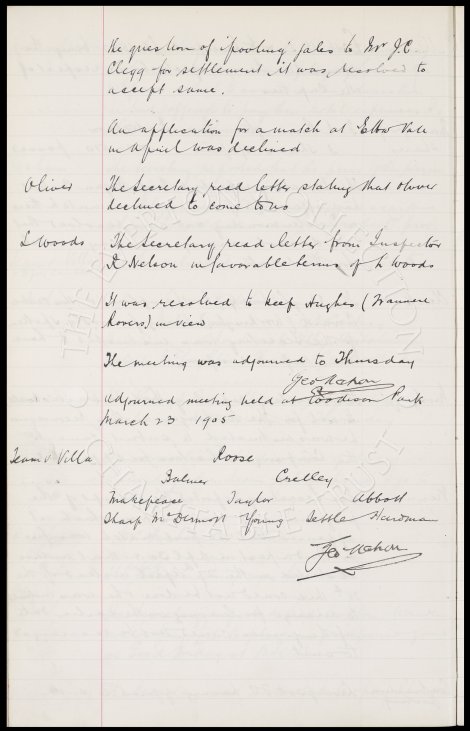 the question of 'pooling' gates to Mr J.C.
Clegg for settlement it was resolved to
accept same.
An application for a match at Ebbw Vale
in April was declined
Oliver The Secretary read letter stating that Oliver
declined to come to us
L Woods The Secretary read letter from Inspector
R Nelson in favorable terms of L Woods
It was resolved to keep Hughes (
Rovers) in view
The meeting was adjourned to Thursday
Geo Mahon
Adjourned meeting held at Goodison Park
March 23 1905
Team v Villa Roose
Balmer Crelley
Makepeace Taylor Abbott
Sharp McDermott Young Settle Hardman
Geo Mahon
THE EVERTON COLLECTION
CHARITABLE TRUST